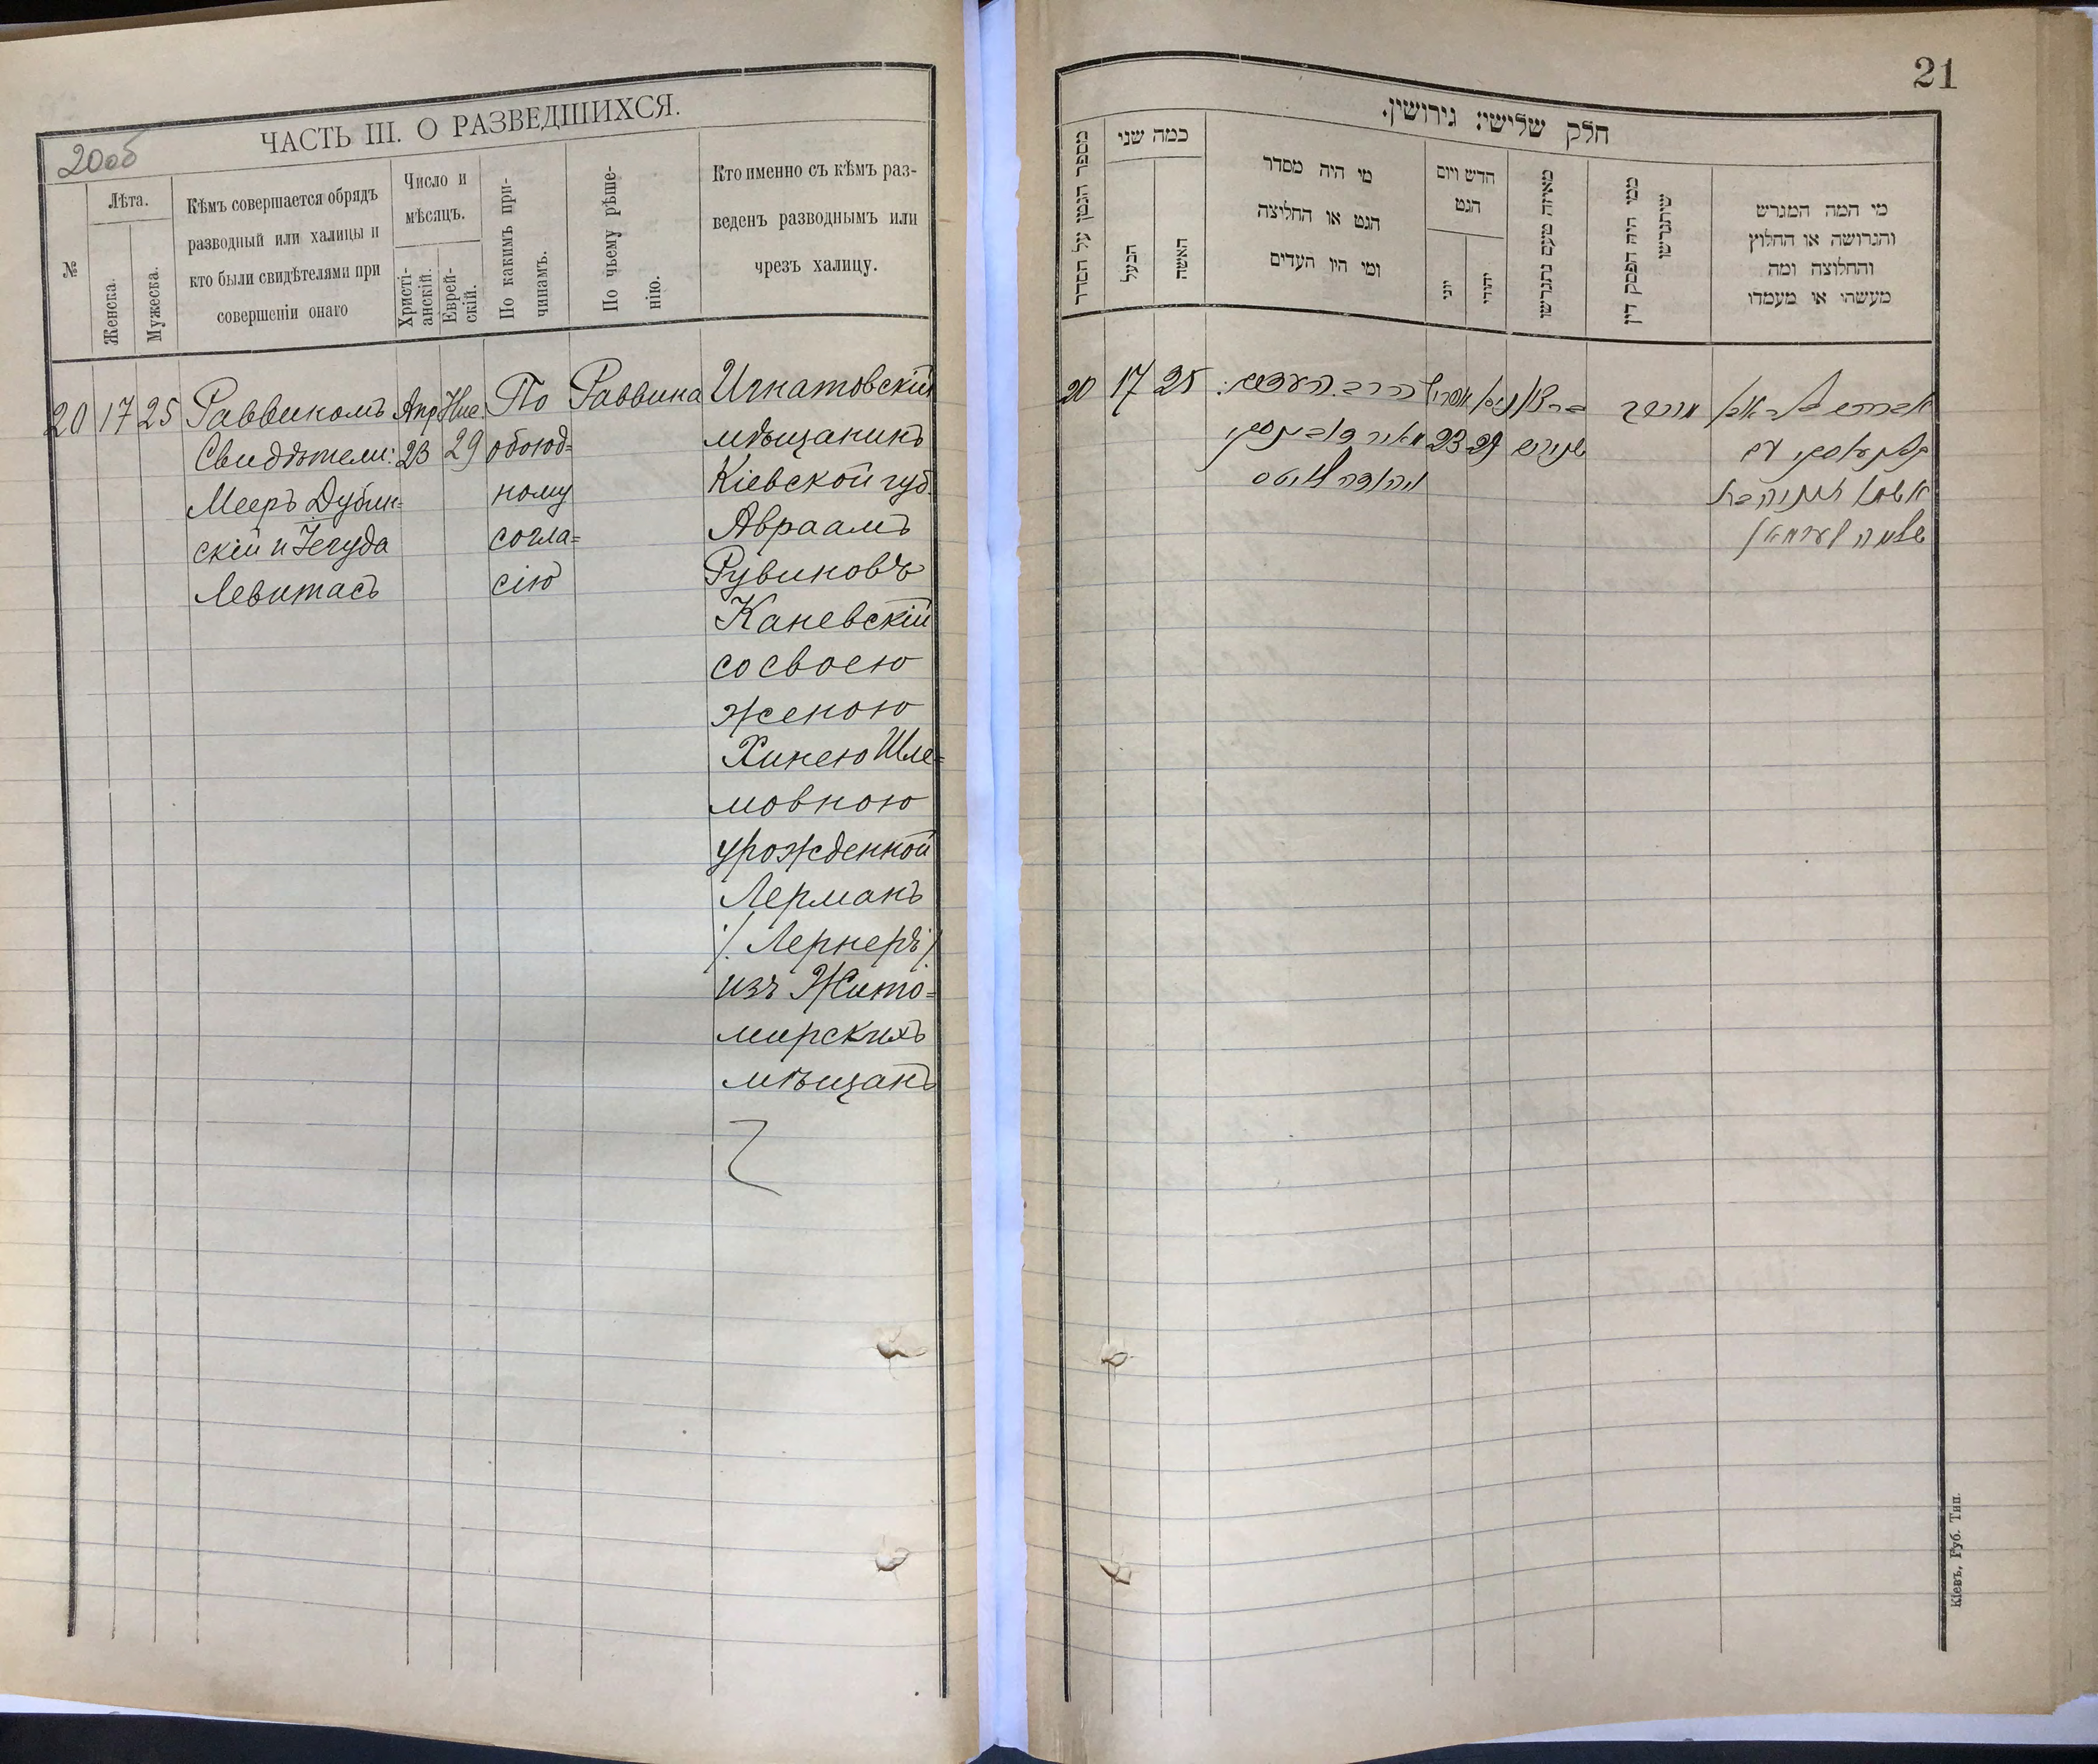 20об
ЧАСТЬ III. О РАЗВЕДШИХСЯ.
№
Лѣта.
Женска.
Мужеска.
Кѣмъ совершается обрядъ
разводный или халицы и
кто были свидѣтелями при
совершеніи онаго
Число и
мѣсяцъ.
Христі-
анскій.
Еврей-
скій.
По какимъ при-
чинамъ.
По чьему рѣше-
нію.
Кто именно съ кѣмъ раз-
веденъ разводнымъ или
чрезъ халицу.
20
17
25
Раввиномъ
Свидѣтели:
Мееръ Дублин=
скій и Іегуда
Левитасъ
Апр
23
Нис.
29
По
обоюд=
ному
согла=
сію
Раввина
Игнатовскій
мѣщанинъ
Кіевской губ.
Авраамъ
Рувиновъ
Каневскій
со своею
женою
Хинею Шле=
мовною
урожденной
Лерманъ
/Лернеръ/
изъ Жито=
мирскихъ
мѣщанъ
21
חלק שלישי: גירושין.
מספר הנמן על הסדר
כמה שני
הבעל
האשה
מי היה מסדר
הגט או החליצה
ומי היו העדים
חדש ויום
הגט
יוני
יהודי
מאיזה טעם נתגרשו
ממי היה הפסק דין
שיתגרשו
מי המה המגרש
והגרושה או החלוץ
והחלוצה ומה
מעשהו או מעמדו
20
17
25
הרב. העדים:
מאיר דובלינסקי
ויהודה לוויטס
אפריל
23
ניסן
29
ברצון
שניהם
מהרב
אברהם בן ראובן
קאנעווסקי עם
אשתו חינה בת
שלמה לערמאן
Кіевъ, Губ. Тип.